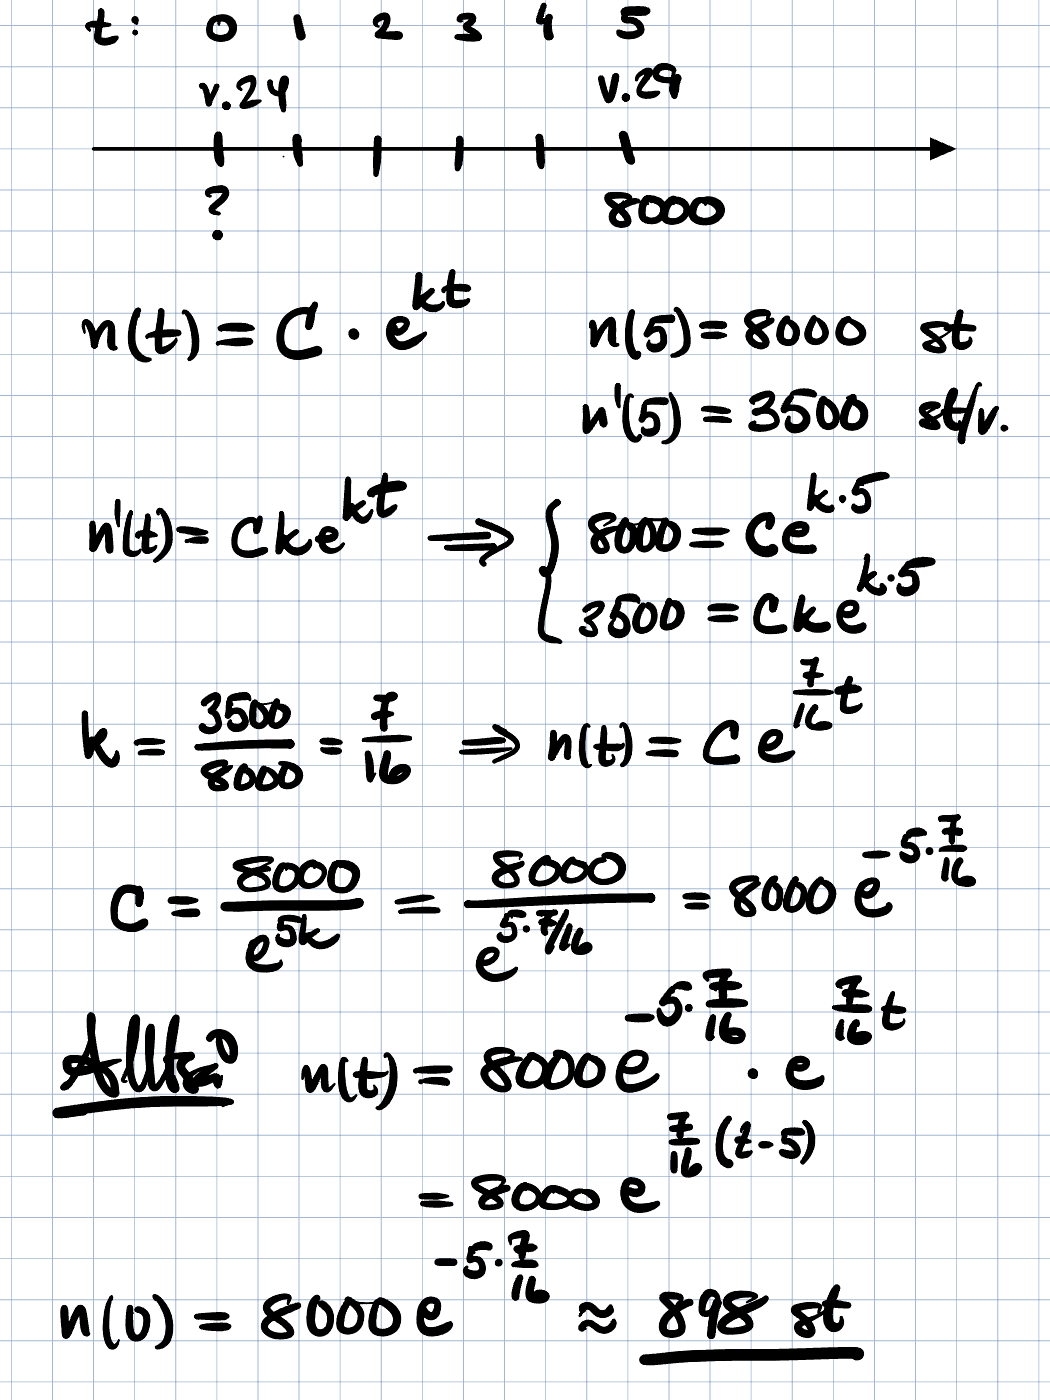 t: 0 1 2 3 4 5
v.24 v.29
? 8000
n(t) = C · e^{kt} n(5) = 8000 st
n'(5) = 3500 st/v.
n'(t) = C k e^{kt} ⟹ { 8000 = C e^{k·5}
3500 = C k e^{k·5}
k = 3500/8000 = 7/16 ⟹ n(t) = C e^{7/16 t}
C = 8000/e^{5k} = 8000/e^{5·7/16} = 8000 e^{-5·7/16}
Alltså n(t) = 8000 e^{-5·7/16} · e^{7/16 t}
= 8000 e^{7/16 (t-5)}
n(0) = 8000 e^{-5·7/16} ≈ 898 st